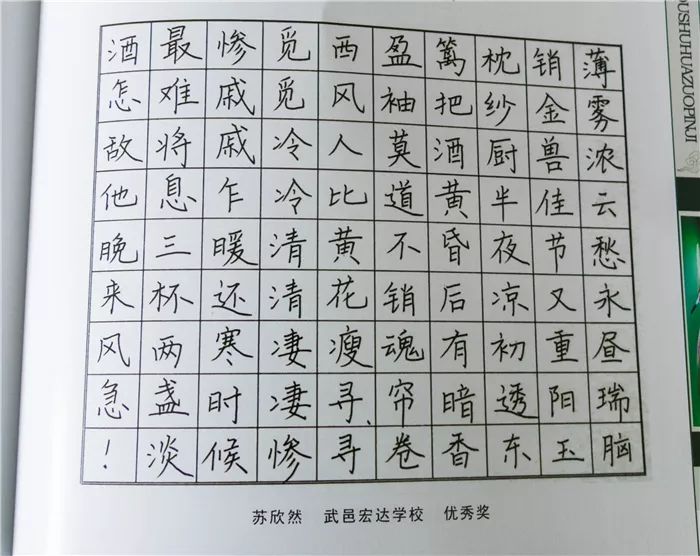 薄雾浓云愁永昼瑞脑
销金兽佳节又重阳玉
枕纱厨半夜凉初透东
篱把酒黄昏后有暗香
盈袖莫道不销魂帘卷
西风人比黄花瘦寻、寻
觅觅冷冷清清凄凄惨
惨戚戚乍暖还寒时候
最难将息三杯两盏淡
酒怎敌他晚来风急！
苏欣然 武邑宏达学校 优秀奖
OUSHUHUAZUOPINJI